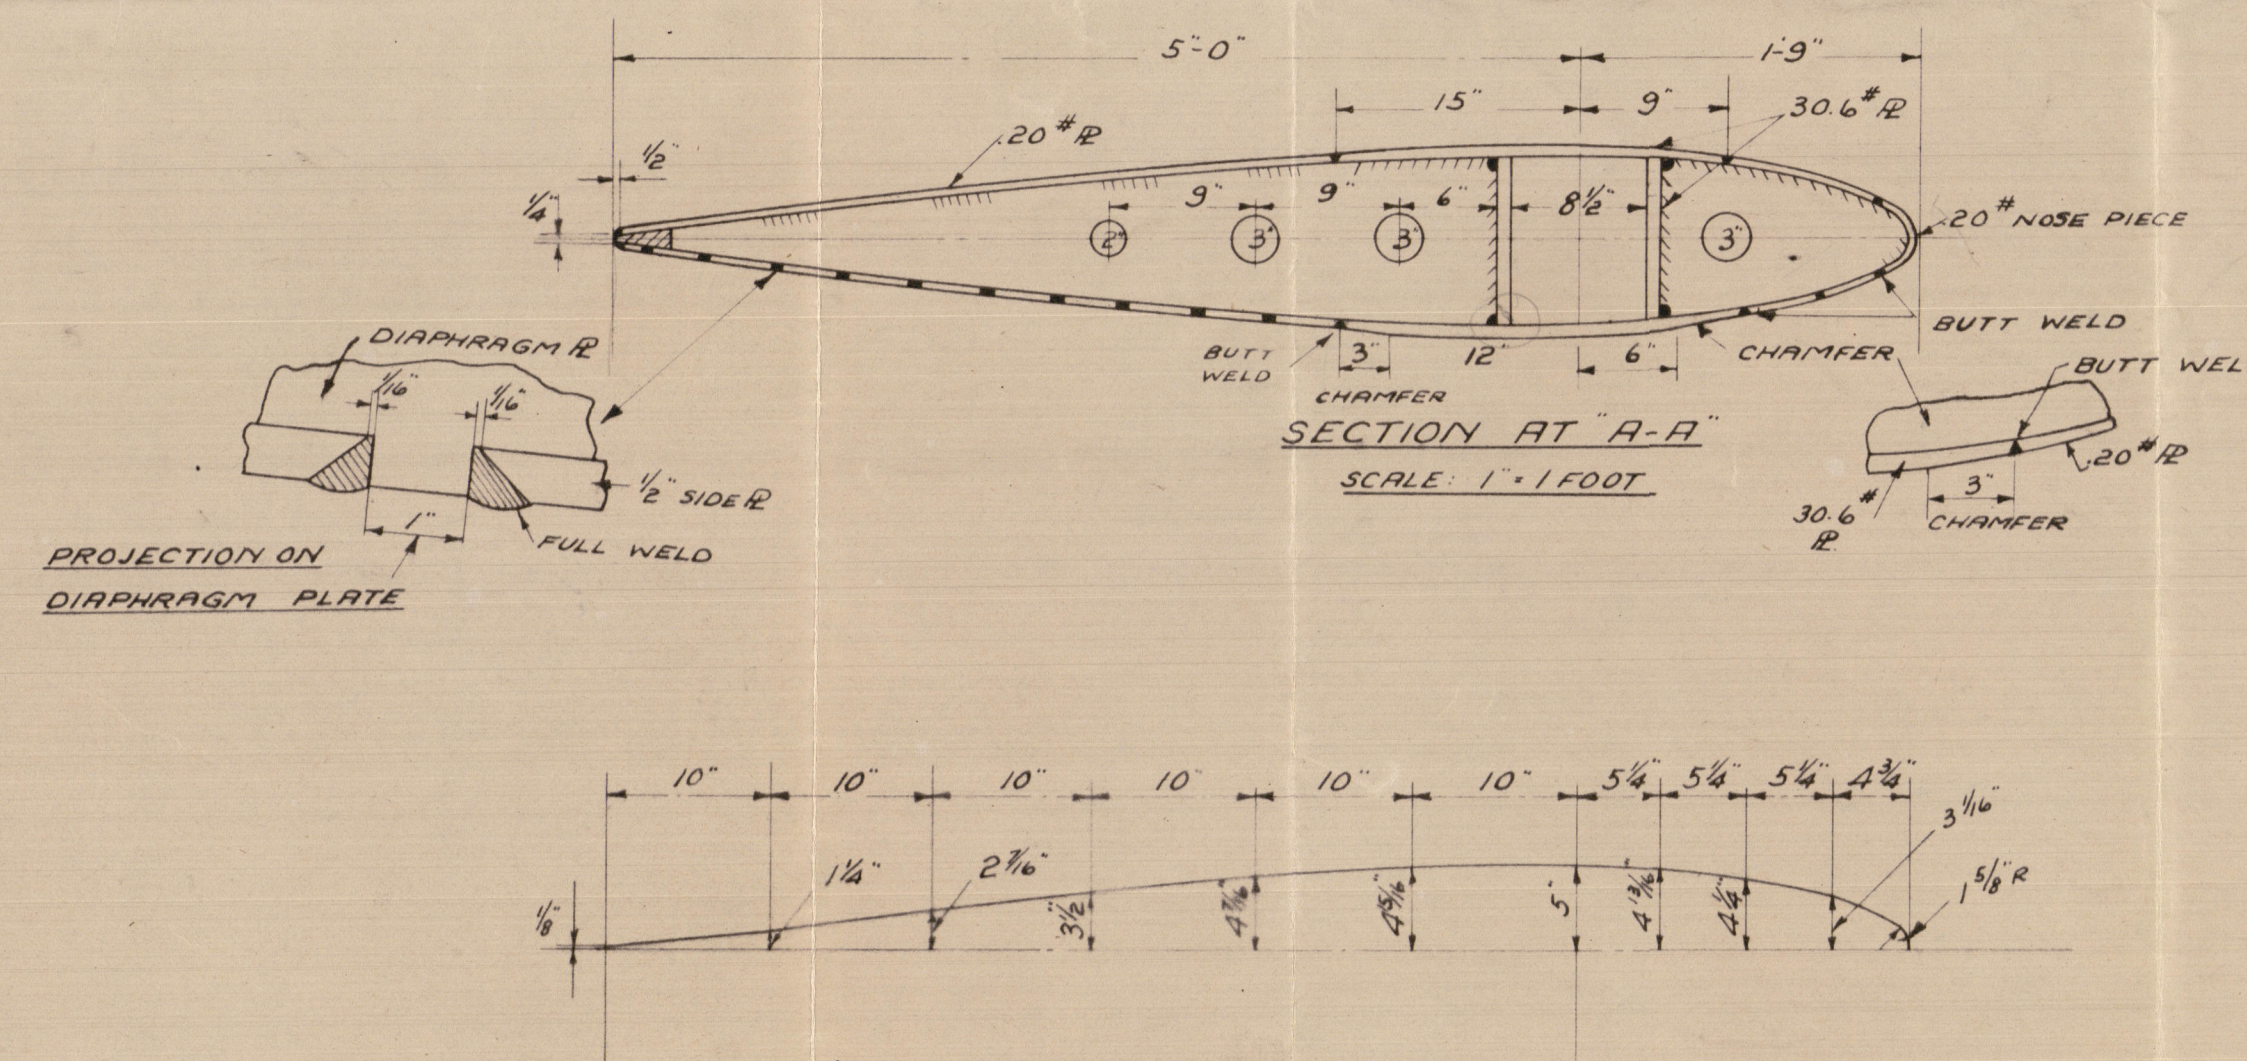 5"-0"
1'-9"
15"
9"
30.6# PL
20# PL
1/2"
1/4"
9"
9"
6"
8 1/2"
2"
3"
3"
3"
20# NOSE PIECE
BUTT WELD
BUTT
WELD
3"
12"
6"
CHAMFER
CHAMFER
BUTT WEL
SECTION AT "A-A"
SCALE: 1" = 1 FOOT
20# PL
3"
30.6#
PL
CHAMFER
DIAPHRAGM PL
1/16"
1/16"
1/2" SIDE PL
1"
FULL WELD
PROJECTION ON
DIAPHRAGM PLATE
10"
10"
10"
10"
10"
10"
5 1/4"
5 1/4"
5 1/4"
4 3/4"
1/8"
1 1/4"
2 7/16"
3 1/2"
4 7/16"
4 15/16"
5"
4 13/16"
4 1/4"
3 1/16"
1 5/8" R